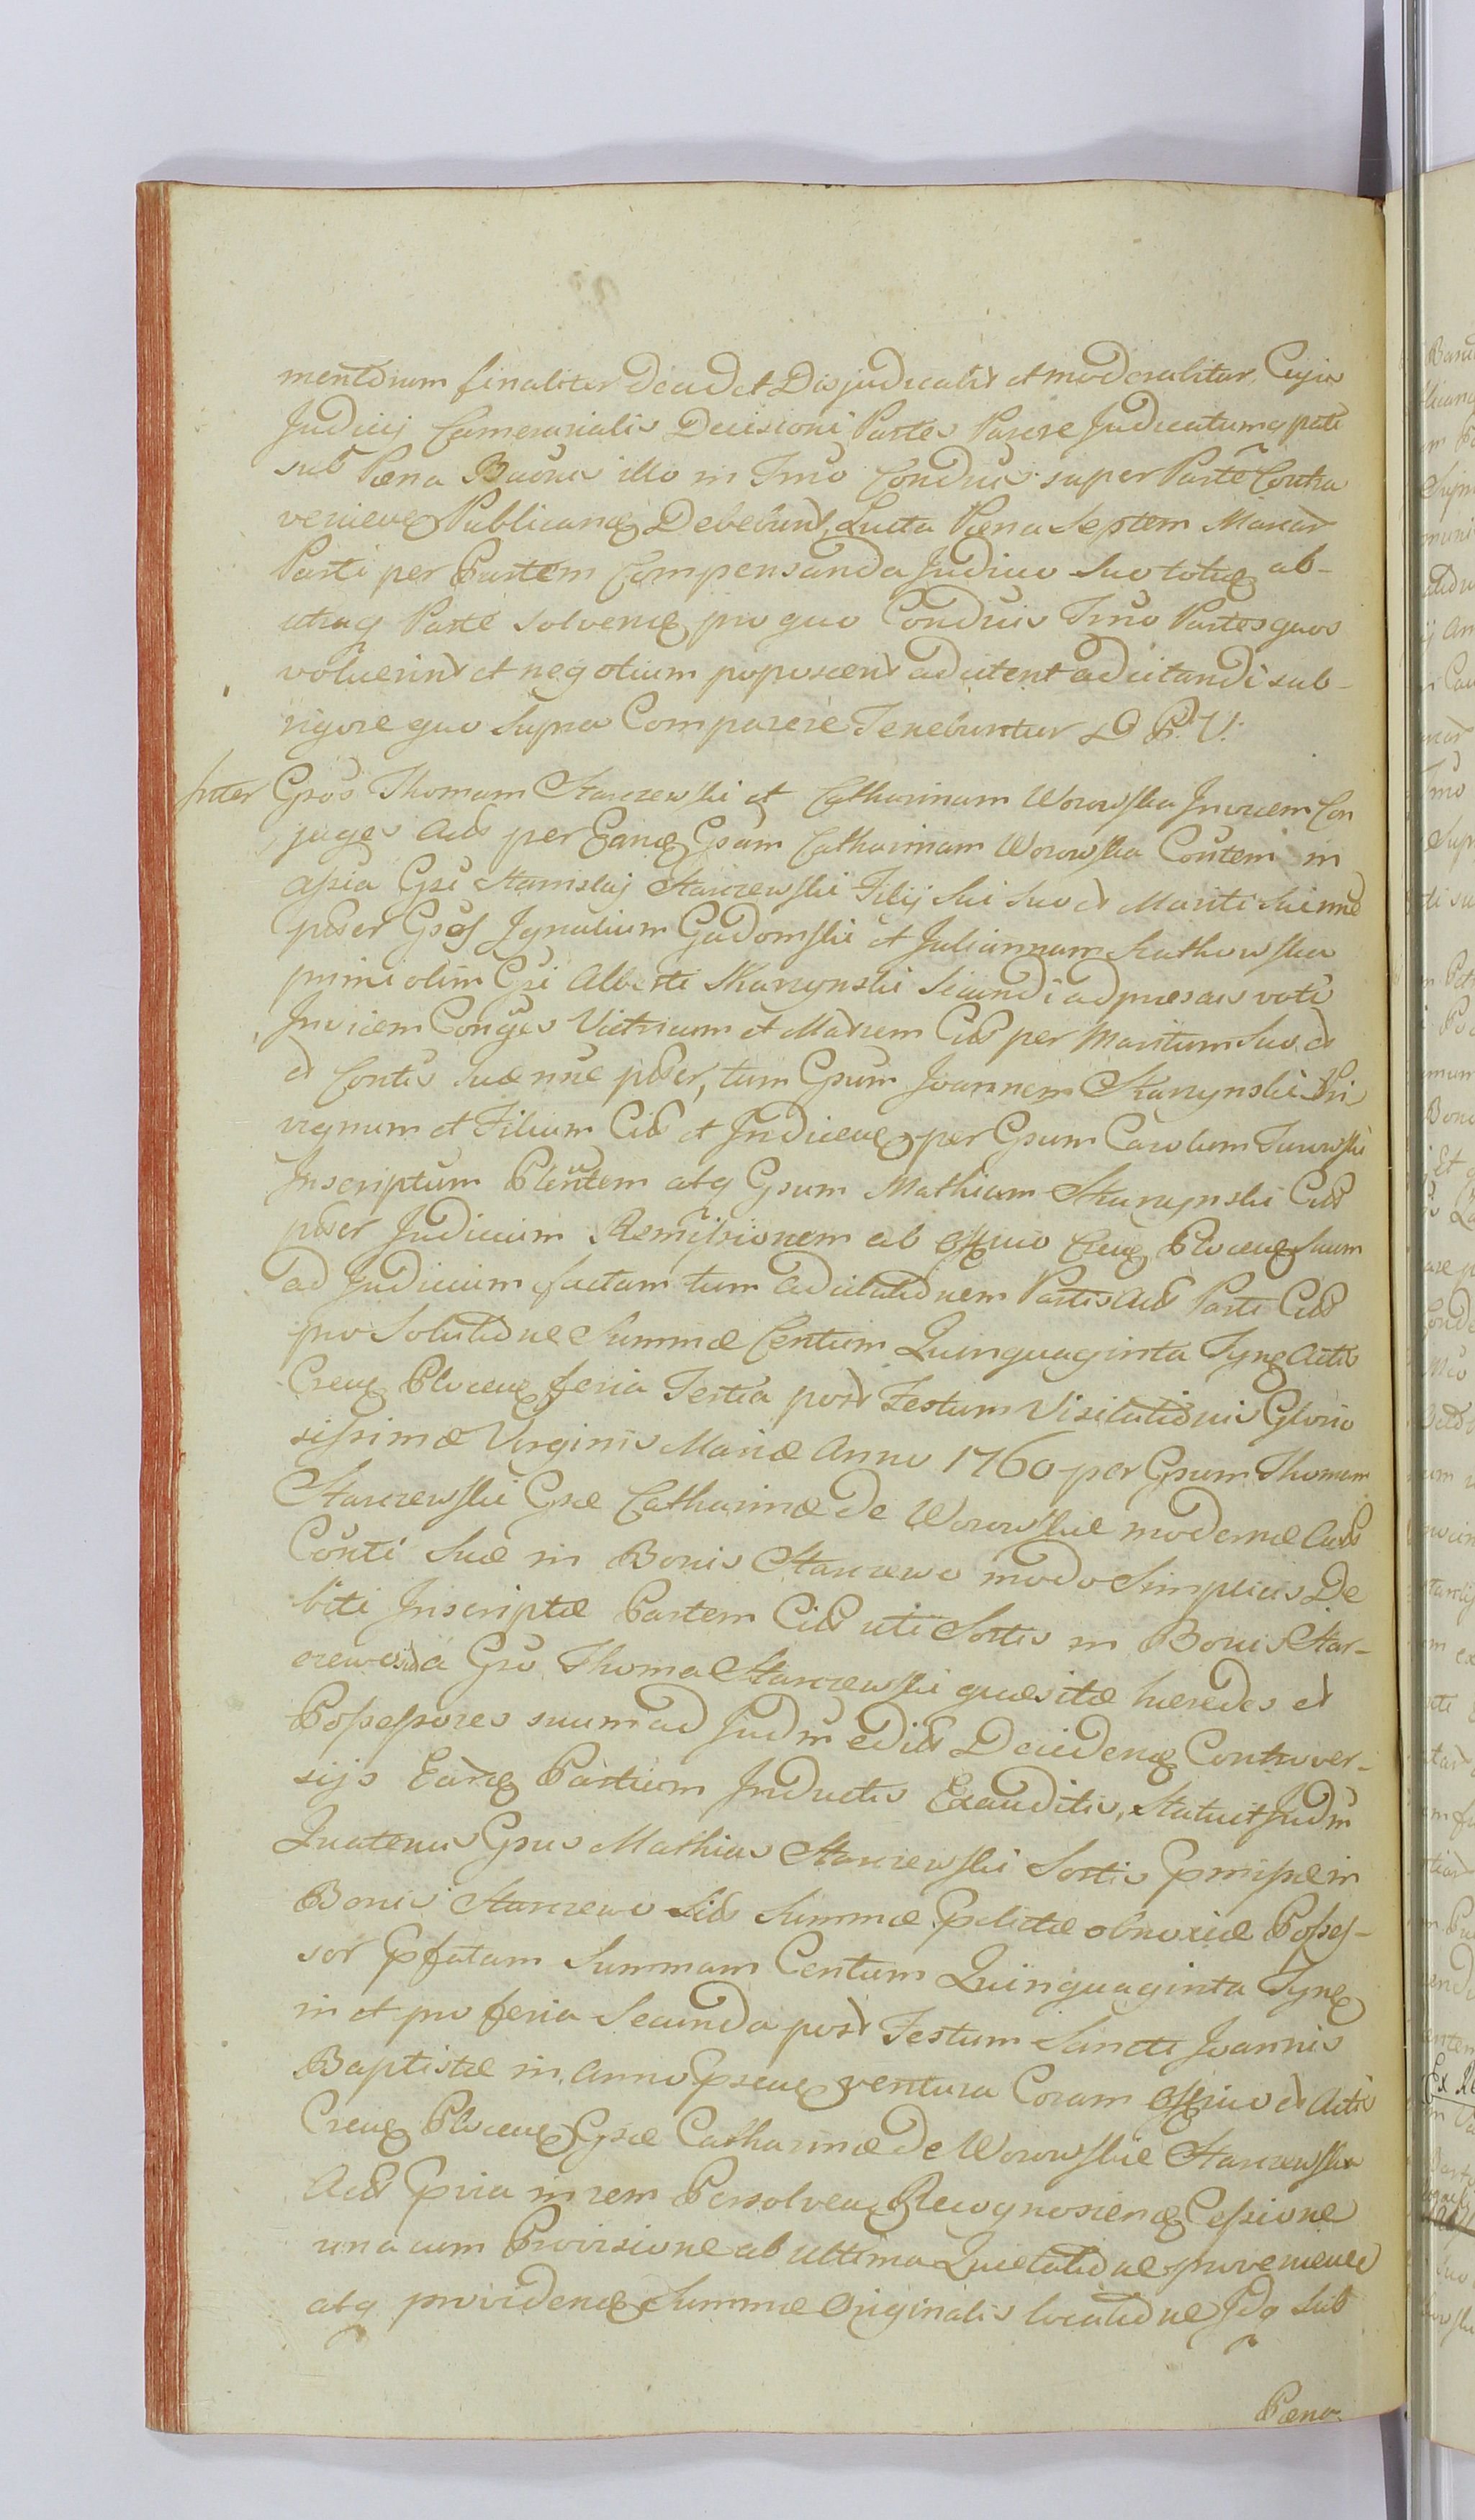 mentorum finaliter decidet Disjudicabit et moderabitur, Cujus
Judicij Camerarialis Decisioni Partes Parere Judicatumq pati
sub Pæna Baõnis illo in Tm̃o Condicto super Parte Contra
venien Publican Debebunt, Lucta Pæna Septem Marcar
Parti per Partem Compensanda Judicio Suo toties ab-
utraq Parte solven pro quo Condicto Tm̃o Partes quos
voluerint et negotium poposcerit adcitent adcitandi sub-
rigore quo supra Comparere Tenebuntur D. P. V.
Inter Gsos Thomam Starczewski et Catharinam Worowska Invicem Con
juges Act per Eand Gsam Catharinam Worowska Contem in
assia Gsi Stanislaj Starczewski Filij Sui Suo et Mariti Sui nne
pser Gsos Ignatium Gadomski et Juliannam Rutkowska
primi olim Gsi Alberti Skarzynski secundi ad præsens voti
Invicem Conges Vitricum et Matrem Cit per Maritum Suo et
et Contis Suæ nne pser, tum Gsum Joannem Skarzynski Pri
vignum et Filium Cit et Indicen per Gsum Carolum Turowski
Inscriptum Plentem atq Gsum Mathiam Skarzynski Cit
pser Judicium Remissionem ab Officio Cren Plocen Suum
ad Judicium factam tum adcitationem Partis Act Parti Cit
pro Solutione Summæ Centum Quinquaginta Tyn Actis
Cren Plocen feria Tertia post Festum Visitationis Glorio
sissimæ Virginis Mariæ Anno 1760 per Gsum Thomam
Starczewski Gsæ Catharinæ de Worowskie modernæ Act
Conti Suæ in Bonis Starczewo modo Simplicis De
biti Inscriptæ Partem Cit uti Sortis in Bonis Star-
czewo a Gso Thoma Starczewski quæsitæ hæredes et
Possessores suum ad Judm edit Deciden Controver-
sijs Earud Partium Inductis Exauditis, Statuit Judm
Quatenus Gsus Mathias Starczewski Sortis pmissæ in
Bonis Starczewo Summæ obnoxiæ Posses-
sor pfatam Summam Centum Quinquaginta Tyn
in et pro feria Secunda post Festum Sancti Joannis
Baptistæ in Anno pseno ventura Coram Officio et Actis
Cren Plocen Gsæ Catharinæ de Worowskie Starczewska
Act pvia in rem Persolven Recognoscen Cessione
una cum Provisione ab ultima Quietatione proveniente
atq providen Summæ Originalis locatione Idq Sub
Pæna